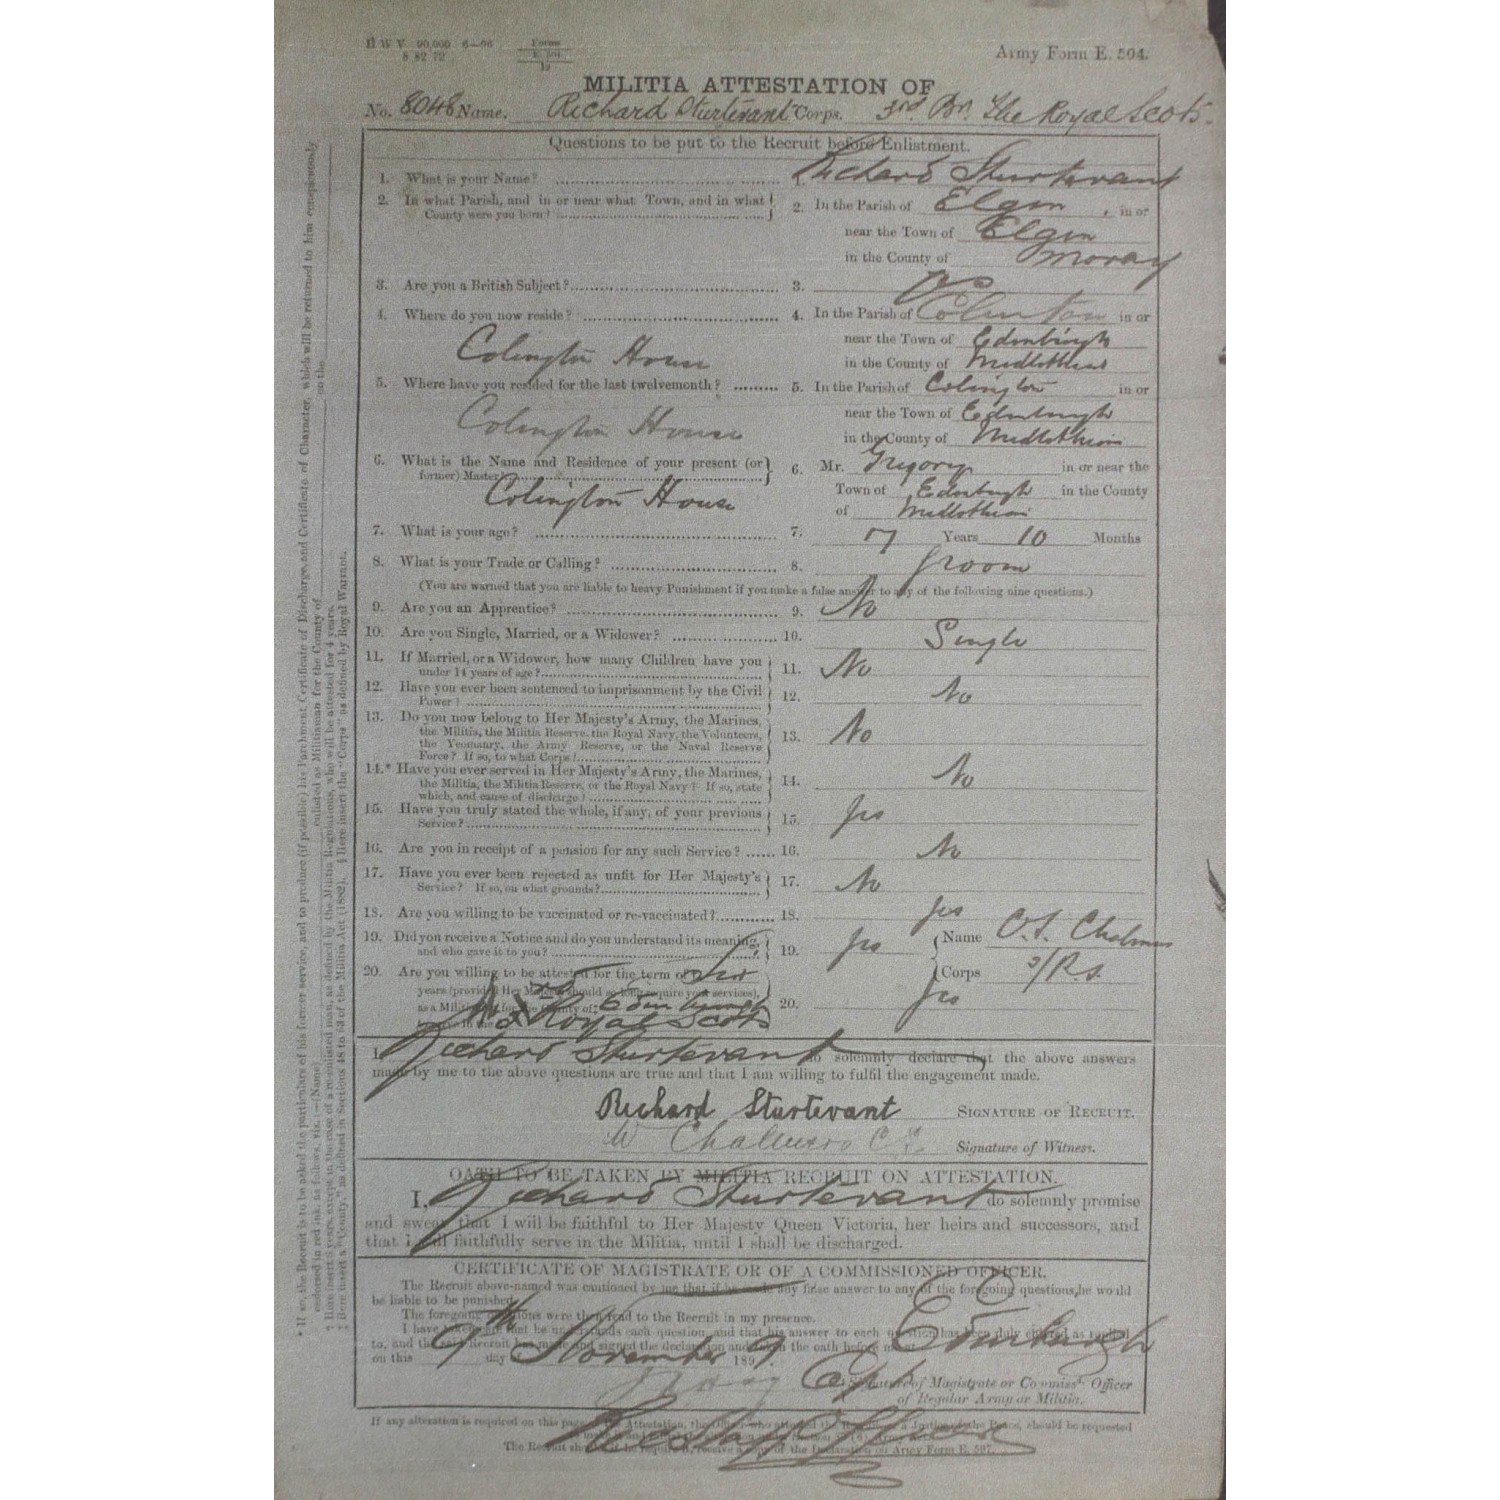 H W V 90,000 6—96 Forms
8 82 72 E. 504
12
Army Form E. 504.
MILITIA ATTESTATION OF
No. 8048 Name. Richard Sturtevant Corps. 3rd Bn. The Royal Scots.
Questions to be put to the Recruit before Enlistment.
1. What is your Name? 1. Richard Sturtevant
2. In what Parish, and in or near what Town, and in what County were you born? 2. In the Parish of Elgin, in or
near the Town of Elgin
in the County of Moray
3. Are you a British Subject? 3.
4. Where do you now reside? 4. In the Parish of Colinton in or
near the Town of Edinburgh
Colington House in the County of Midlothian
5. Where have you resided for the last twelvemonth? 5. In the Parish of Colington in or
near the Town of Edinburgh
Colington House in the County of Midlothian
6. What is the Name and Residence of your present (or former) Master? 6. Mr. Gregory in or near the
Colington House Town of Edinburgh in the County
of Midlothian
7. What is your age? 7. 17 Years 10 Months
8. What is your Trade or Calling? 8. Groom
(You are warned that you are liable to heavy Punishment if you make a false answer to any of the following nine questions.)
9. Are you an Apprentice? 9. No
10. Are you Single, Married, or a Widower? 10. Single
11. If Married, or a Widower, how many Children have you
under 14 years of age? 11. No
12. Have you ever been sentenced to imprisonment by the Civil
Power? 12. No
13. Do you now belong to Her Majesty's Army, the Marines,
the Militia, the Militia Reserve, the Royal Navy, the Volunteers,
the Yeomanry, the Army Reserve, or the Naval Reserve
Force? If so, to what Corps? 13. No
14.* Have you ever served in Her Majesty's Army, the Marines,
the Militia, the Militia Reserve, or the Royal Navy? If so, state
which, and cause of discharge? 14. No
15. Have you truly stated the whole, if any, of your previous
Service? 15. Yes
16. Are you in receipt of a pension for any such Service? 16. No
17. Have you ever been rejected as unfit for Her Majesty's
Service? If so, on what grounds? 17. No
18. Are you willing to be vaccinated or re-vaccinated? 18. Yes
19. Did you receive a Notice and do you understand its meaning,
and who gave it to you? 19. Yes Name Chalmers
Corps 3/R.S.
20. Are you willing to be attested for the term of Six
years (provided Her Majesty should so long require your services),
as a Militiaman for the County of Edinburgh
Royal Scots 20. Yes
I, Richard Sturtevant do solemnly declare that the above answers
made by me to the above questions are true and that I am willing to fulfil the engagement made.
Richard Sturtevant SIGNATURE OF RECRUIT.
W Chalmers Signature of Witness.
OATH TO BE TAKEN BY MILITIA RECRUIT ON ATTESTATION.
I, Richard Sturtevant do solemnly promise
and swear that I will be faithful to Her Majesty Queen Victoria, her heirs and successors, and
that I will faithfully serve in the Militia, until I shall be discharged.
CERTIFICATE OF MAGISTRATE OR OF A COMMISSIONED OFFICER.
The Recruit above-named was cautioned by me that if he made any false answer to any of the foregoing questions, he would
be liable to be punished.
The foregoing questions were then read to the Recruit in my presence.
I have taken care that he understands each question, and that his answer to each question has been duly entered as replied
to, and the said Recruit has made and signed the declaration and taken the oath before me at Edinburgh
on this 9th day of November 1897.
Capt Signature of Magistrate or Commissd. Officer
of Regular Army or Militia.
If any alteration is required on this page of the Attestation, the Officer who attested the Recruit, or a Justice of the Peace, should be requested
The Recruit should, if he require it, receive a copy of the Declaration on Army Form E. 507.
* If so, the Recruit is to be asked the particulars of his former service, and to produce (if possible) his Parchment Certificate of Discharge, and Certificate of Character, which will be returned to him conspicuously
endorsed in red ink, as follows, viz.:—(Name) enlisted as Militiaman for the County of on the
† Here insert 6 years, except in the case of a re-enlisted man, as defined by the Militia Regulations, who will be attested for 4 years.
‡ Here insert a "County," as defined in Sections 48 to 63 of the Militia Act (1882). § Here insert the "Corps" as defined by Royal Warrant.